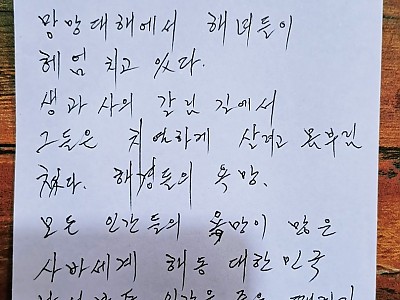 망망대해에서 해녀들이
헤엄 치고 있다.
생과 사의 갈림 길에서
그들은 치열하게 살려고 몸부림
쳤다. 해녀들의 욕망.
모든 인간들의 욕망이 많은
사바세계 해동 대한민국